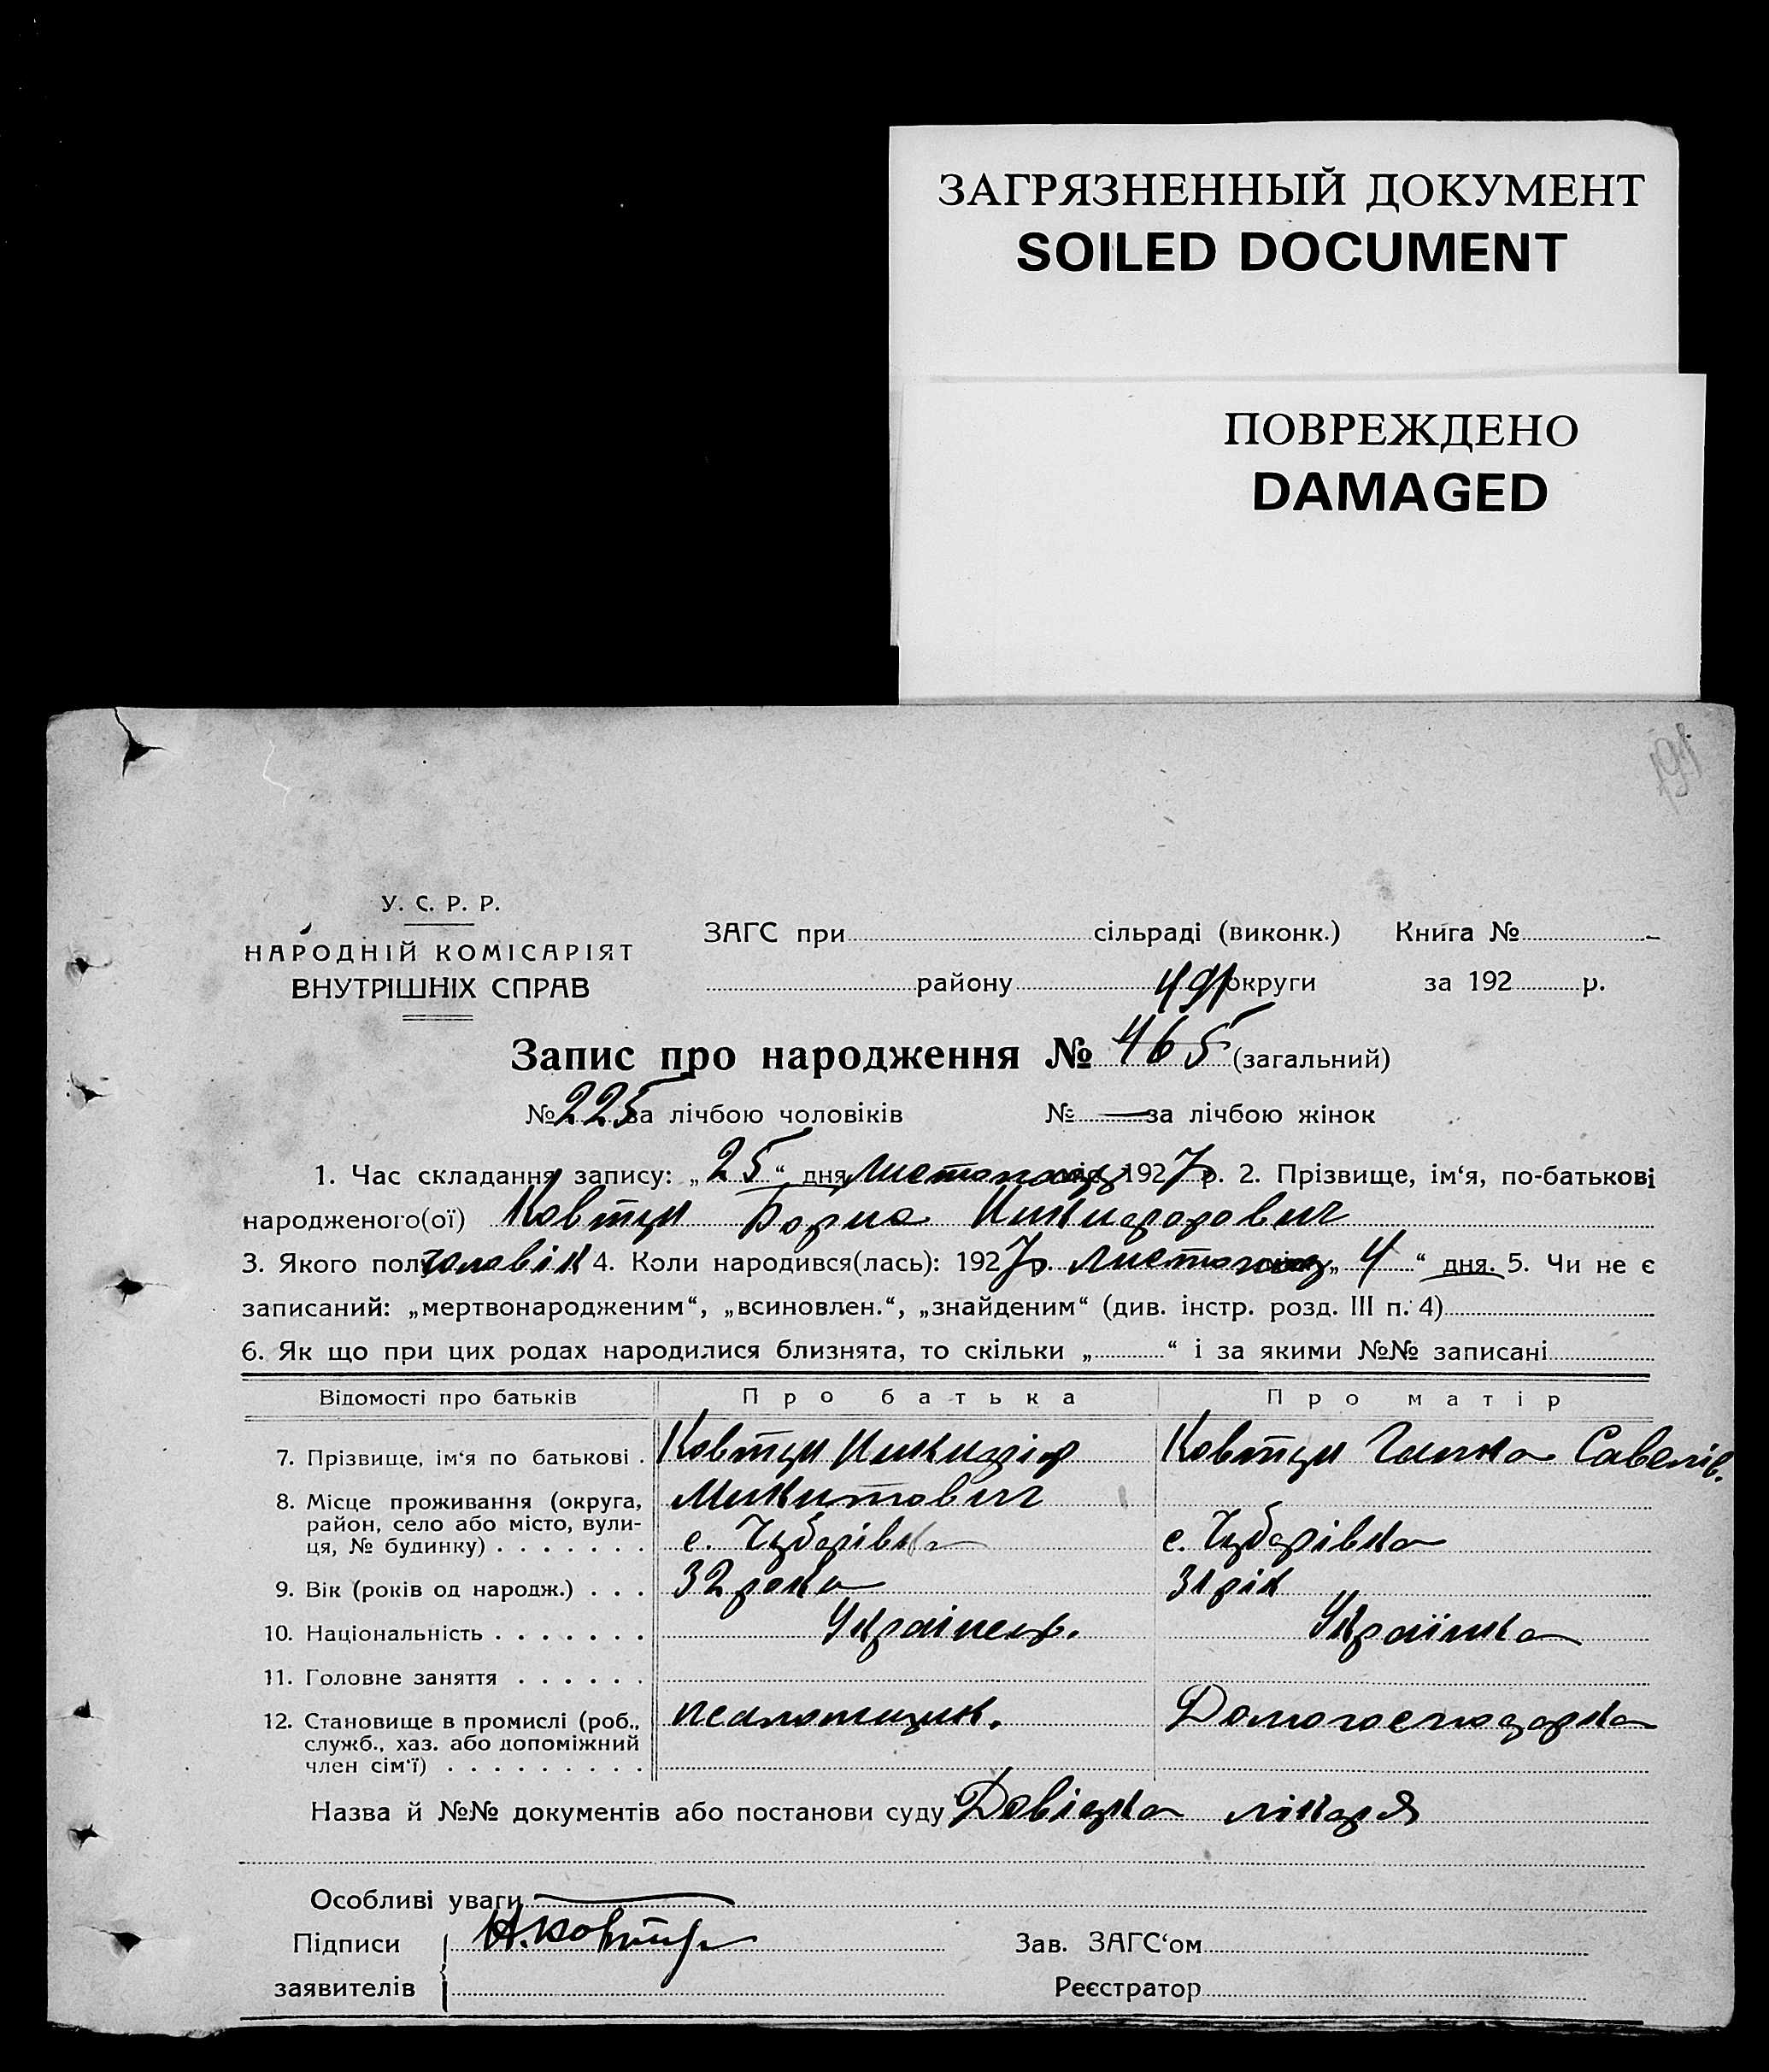 ЗАГРЯЗНЕННЫЙ ДОКУМЕНТ
SOILED DOCUMENT
ПОВРЕЖДЕНО
DAMAGED
191
У. С. Р. Р.
НАРОДНІЙ КОМІСАРІЯТ
ВНУТРІШНІХ СПРАВ
ЗАГС при сільраді (виконк.) Книга №
району округи за 192 р.
491
Запис про народження № 465 (загальний)
№ 225 за лічбою чоловіків № — за лічбою жінок
1. Час складання запису: „25“ дня Листопада 1927 р. 2. Прізвище, ім‘я, по-батькові
народженого(ої) Ковтун Борис Никифорович
3. Якого полу чоловік 4. Коли народився(лась): 1927 р. Листопада „4“ дня. 5. Чи не є
записаний: „мертвонародженим“, „всиновлен.“, „знайденим“ (див. інстр. розд. III п. 4)
6. Як що при цих родах народилися близнята, то скільки „ “ і за якими №№ записані
Відомості про батьків Про батька Про матір
7. Прізвище, ім‘я по батькові . Ковтун Никифір Ковтун Ганна Савелів.
8. Місце проживання (округа, Микитович
район, село або місто, вули-
ця, № будинку) . . . . . . . с. Чубарівка с. Чубарівка
9. Вік (років од народж.) . . . 32 роки 31 рік
10. Національність . . . . . . . Українець. Українка
11. Головне заняття . . . . . .
12. Становище в промислі (роб., псаломщик. Домогосподарка
служб., хаз. або допоміжний
член сім‘ї) . . . . . . . . .
Назва й №№ документів або постанови суду Довідка лікаря
Особливі уваги
Підписи Н. Ковтун Зав. ЗАГС‘ом
заявителів Реєстратор